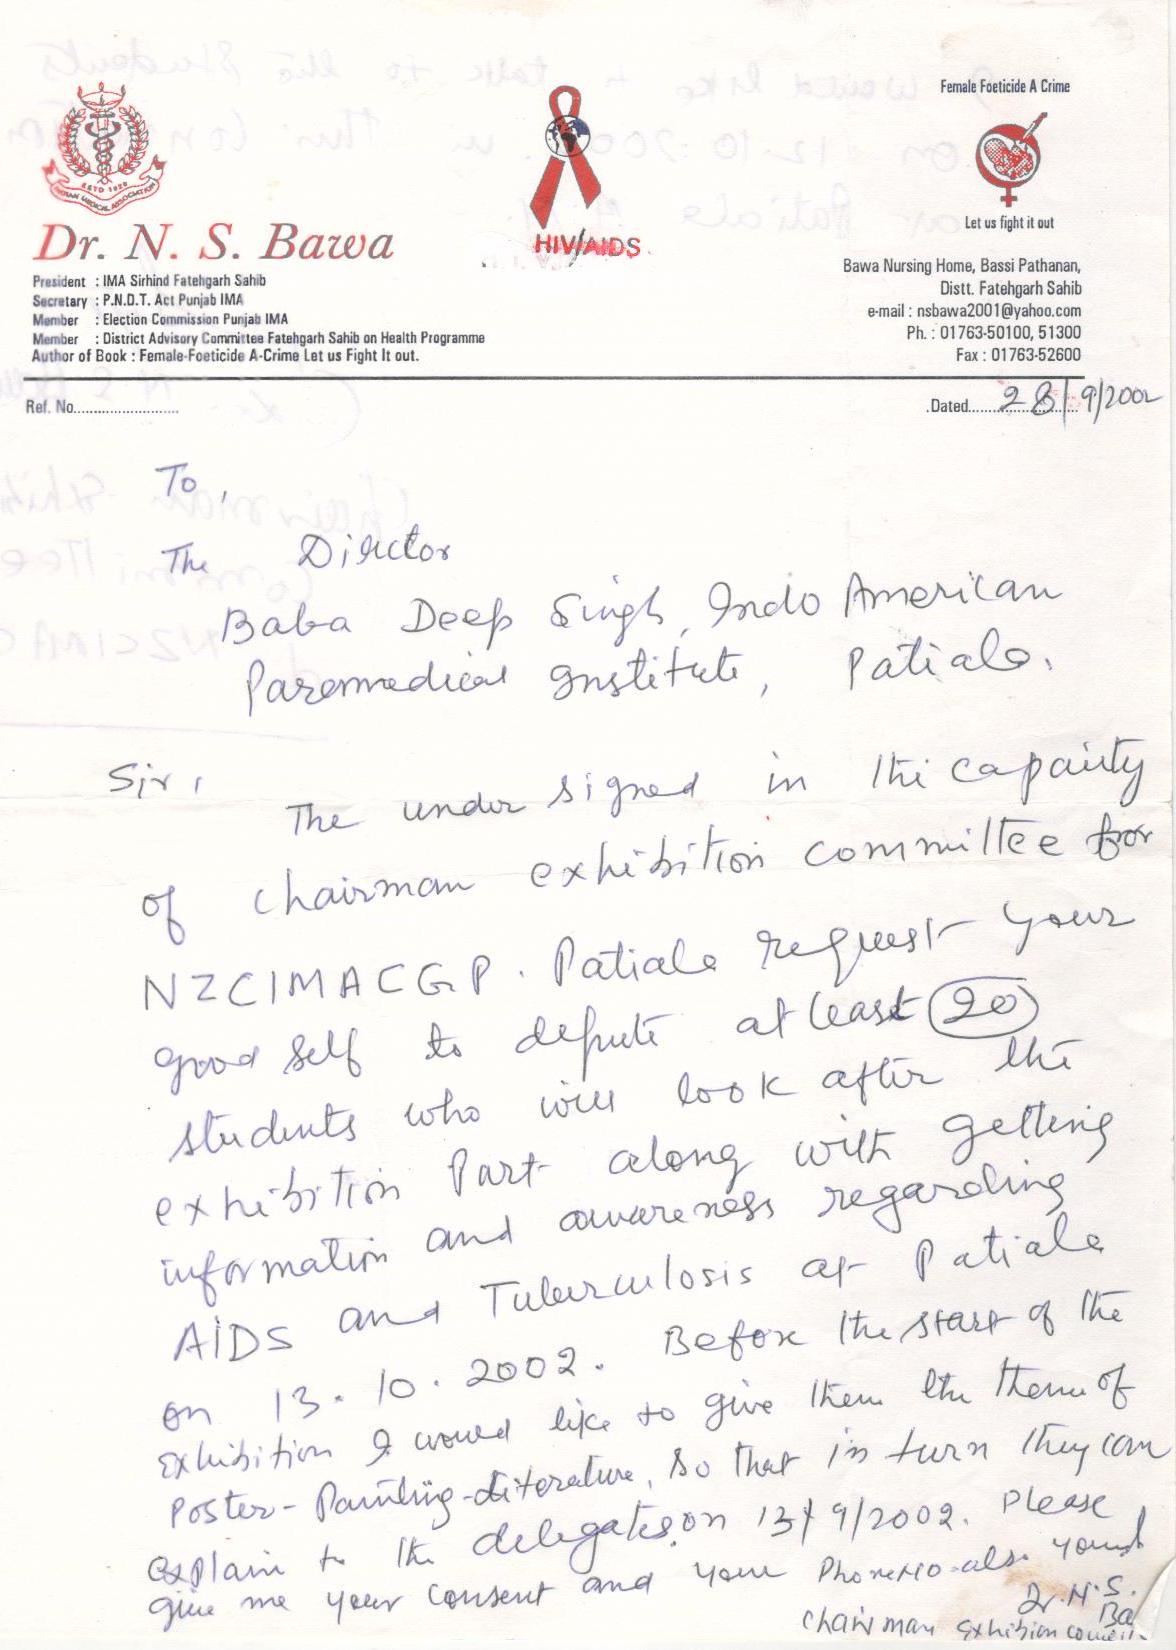 Female Foeticide A Crime
ESTD 1928
INDIAN MEDICAL ASSOCIATION
HIV/AIDS
Let us fight it out
Dr. N. S. Bawa
President : IMA Sirhind Fatehgarh Sahib
Secretary : P.N.D.T. Act Punjab IMA
Member : Election Commission Punjab IMA
Member : District Advisory Committee Fatehgarh Sahib on Health Programme
Author of Book : Female-Foeticide A-Crime Let us Fight It out.
Bawa Nursing Home, Bassi Pathanan,
Distt. Fatehgarh Sahib
e-mail : nsbawa2001@yahoo.com
Ph. : 01763-50100, 51300
Fax : 01763-52600
Ref. No..........................
Dated.......................... 28/9/2002
To,
The Director
Baba Deep Singh, Indo American
Paramedical Institute, Patiala.
Sir,
The under signed in the capaity
of chairman exhibition committee for
NZCIMACGP. Patiala request your
good self to depute at least 20
students who will look after the
exhibition Part along with getting
information and awareness regarding
AIDS and Tuberculosis at Patiala
on 13.10.2002. Before the start of the
exhibition I would like to give them the theme of
Poster-Painting-literature, so that in turn they can
explain to the delegates on 13/9/2002. Please
give me your consent and your Phone No. also yours
Dr. N.S.
Ba
Chairman Exhibition